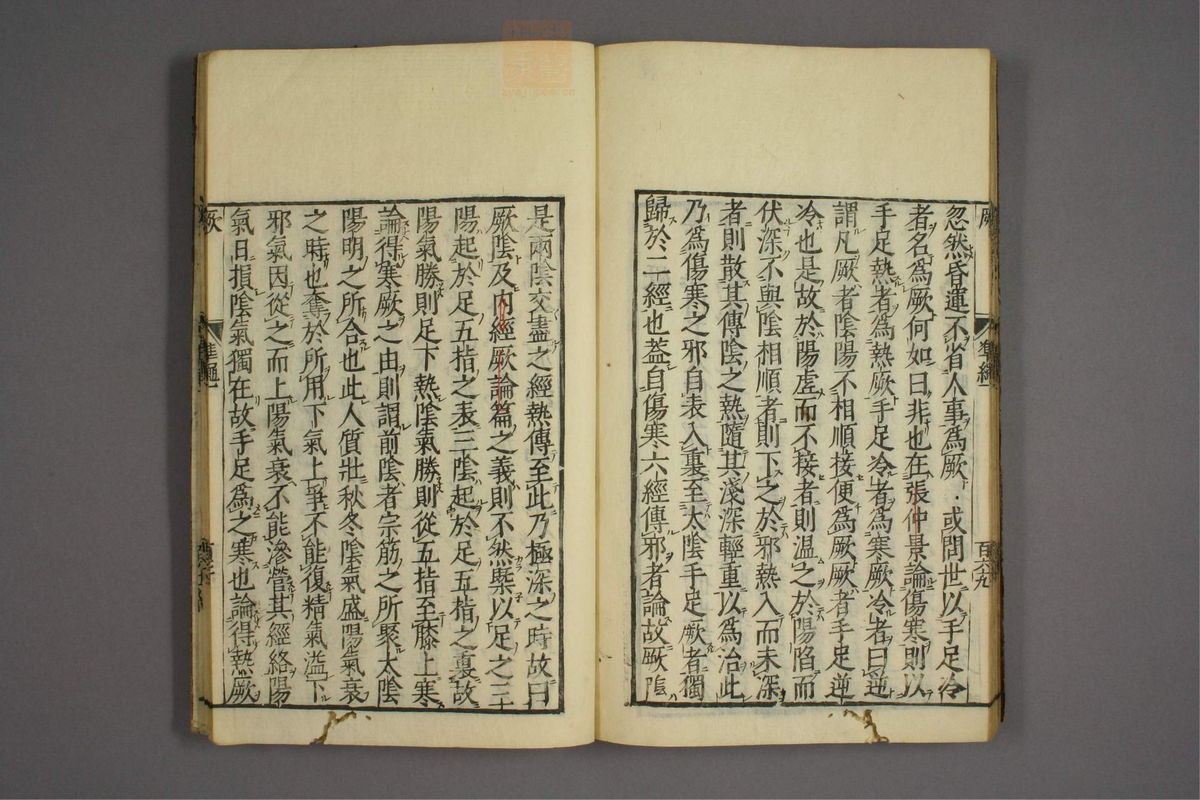 忽然昏運不省人事為厥·或問世以手足冷
者名為厥何如曰非也在張仲景論傷寒則以
手足熱者為熱厥手足冷者為寒厥冷者曰逆
謂凡厥者陰陽不相順接便為厥厥者手足逆
冷也是故於陽虛而不接者則温之於陽陷而
伏深不與陰相順者則下之於邪熱入而未深
者則散其傳陰之熱隨其淺深輕重以為治此
乃為傷寒之邪自表入裏至太陰手足厥者獨
歸於二經也蓋自傷寒六經傳邪者論故厥陰
是兩陰交盡之經熱傳至此乃極深之時故曰
厥陰及内經厥論篇之義則不然槩以足之三
陽起於足五指之表三陰起於足五指之裏故
陽氣勝則足下熱陰氣勝則從五指至膝上寒
論得寒厥之由則謂前陰者宗筋之所聚太陰
陽明之所合也此人質壯秋冬陰氣盛陽氣衰
之時也奪於所用下氣上爭不能復精氣溢下
邪氣因從之而上陽氣衰不能滲營其經絡陽
氣日損陰氣獨在故手足為之寒也論得熱厥
厥
百六九